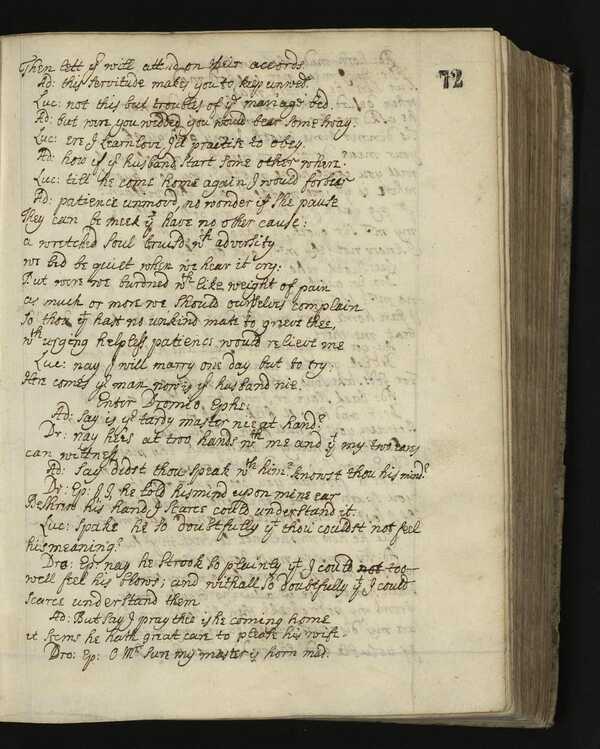 72
Then lett yͤ will attend on their accords
Ad: this servitude makes you to keep unwed.
Luc: not this but troubles of yͤ mariage bed.
Ad: but were you wedded you would bear some sway.
Luc: ere I Learn love, I'le practise to obey.
Ad: how if yͬ husband start some other where.
Luc: till he come home again I would forbear
Ad: patience unmovd, no wonder if she pause
They can be meek yͭ have no other cause:
a wretched soul bruisd wͭʰ adversity
we bid be quiet when we hear it cry:
But were we burdned wͭʰ like weight of pain
as much or more we should ourselves complain
So thou yͭ hast no unkind mate to grieve thee,
wͭʰ urgeing helpless patience would relieve me
Luc: nay I will marry one day but to try:
Here comes yͬ man now is yͬ husband nie.
Enter Dromio Ephe:
Ad: Say is yͬ tardy master nie at hand?
Dr: nay hees at too hands wͭʰ me and yͭ my two ears
can wittness
Ad: Say didst thou speak wͭʰ him? knowst thou his mind?
Dr: Ep: I, I, he told his mind upon mine ear
Beshrew his hand, I scarce could understand it.
Luc: Spake he so doubtfully yͭ thou couldst not feel
his meaning?
Dro: Ep: nay he strook so plainly yͭ I could not too
well feel his blows; and withall so doubtfully yͭ I could
scarce understand them
Ad: But say I pray thee is he coming home
it seems he hath great care to please his wife.
Dro: Ep: O Mͬˢ sure my master is horn mad.